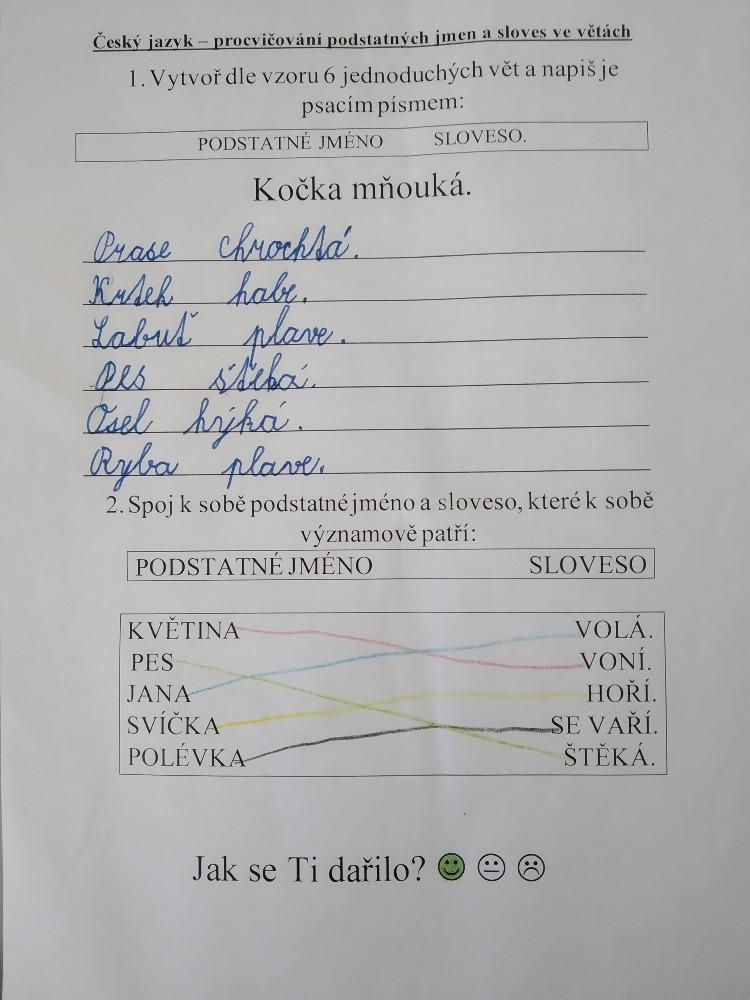 Český jazyk – procvičování podstatných jmen a sloves ve větách
1. Vytvoř dle vzoru 6 jednoduchých vět a napiš je
psacím písmem:
PODSTATNÉ JMÉNO SLOVESO.
Kočka mňouká.
Prase chrochtá.
Krtek habe.
Labuť plave.
Pes štěká.
Osel hýká.
Ryba plave.
2. Spoj k sobě podstatné jméno a sloveso, které k sobě
významově patří:
PODSTATNÉ JMÉNO SLOVESO
KVĚTINA VOLÁ.
PES VONÍ.
JANA HOŘÍ.
SVÍČKA SE VAŘÍ.
POLÉVKA ŠTĚKÁ.
Jak se Ti dařilo?